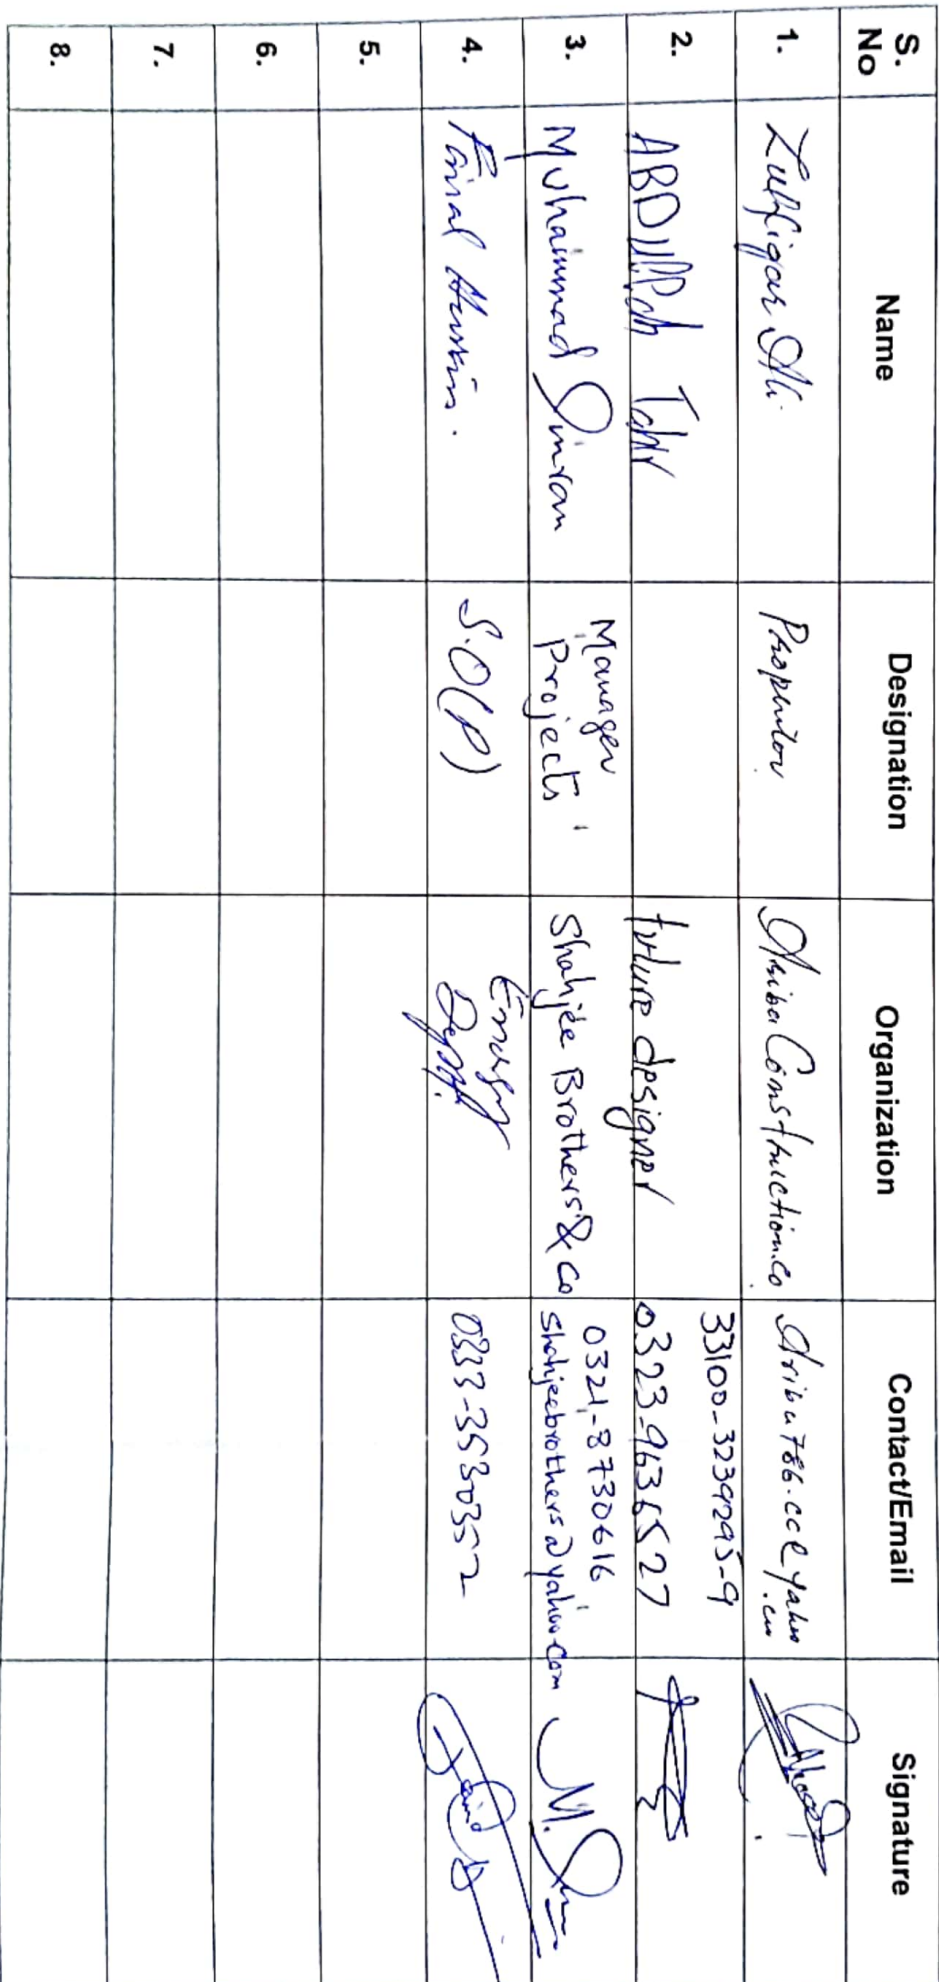 S. No Name Designation Organization Contact/Email Signature
1. Zulfiqar Ali. Propritor Ariba Construction.co Ariba786.cc@yahoo.com
2. ABDUllah Tahir future designer 33100-3239295-9
0323-9636527
3. Muhammad Imran Manager Projects Shahjee Brothers & Co 0321-8730616
shahjeebrothers@yahoo.com M.
4. Faisal Hussain. S.O(P) Energy Deptt. 0333-3530352
5.
6.
7.
8.